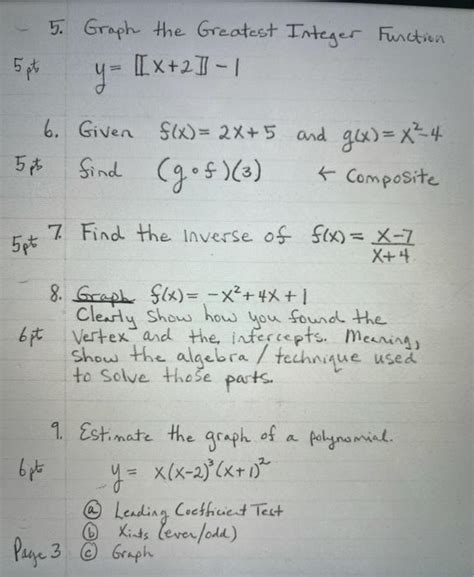 5. Graph the Greatest Integer Function
5 pt y = [[x+2]] - 1
6. Given f(x) = 2x+5 and g(x) = x²-4
5 pts find (g∘f)(3) ← Composite
5pt 7. Find the Inverse of f(x) = (x-7)/(x+4)
8. Graph f(x) = -x²+4x+1
Clearly show how you found the
6 pt vertex and the, intercepts. Meaning,
show the algebra / technique used
to solve those parts.
9. Estimate the graph of a polynomial.
6 pts y = x(x-2)³(x+1)²
ⓐ Leading Coefficient Test
ⓑ Xints (even/odd)
Page 3 ⓒ Graph